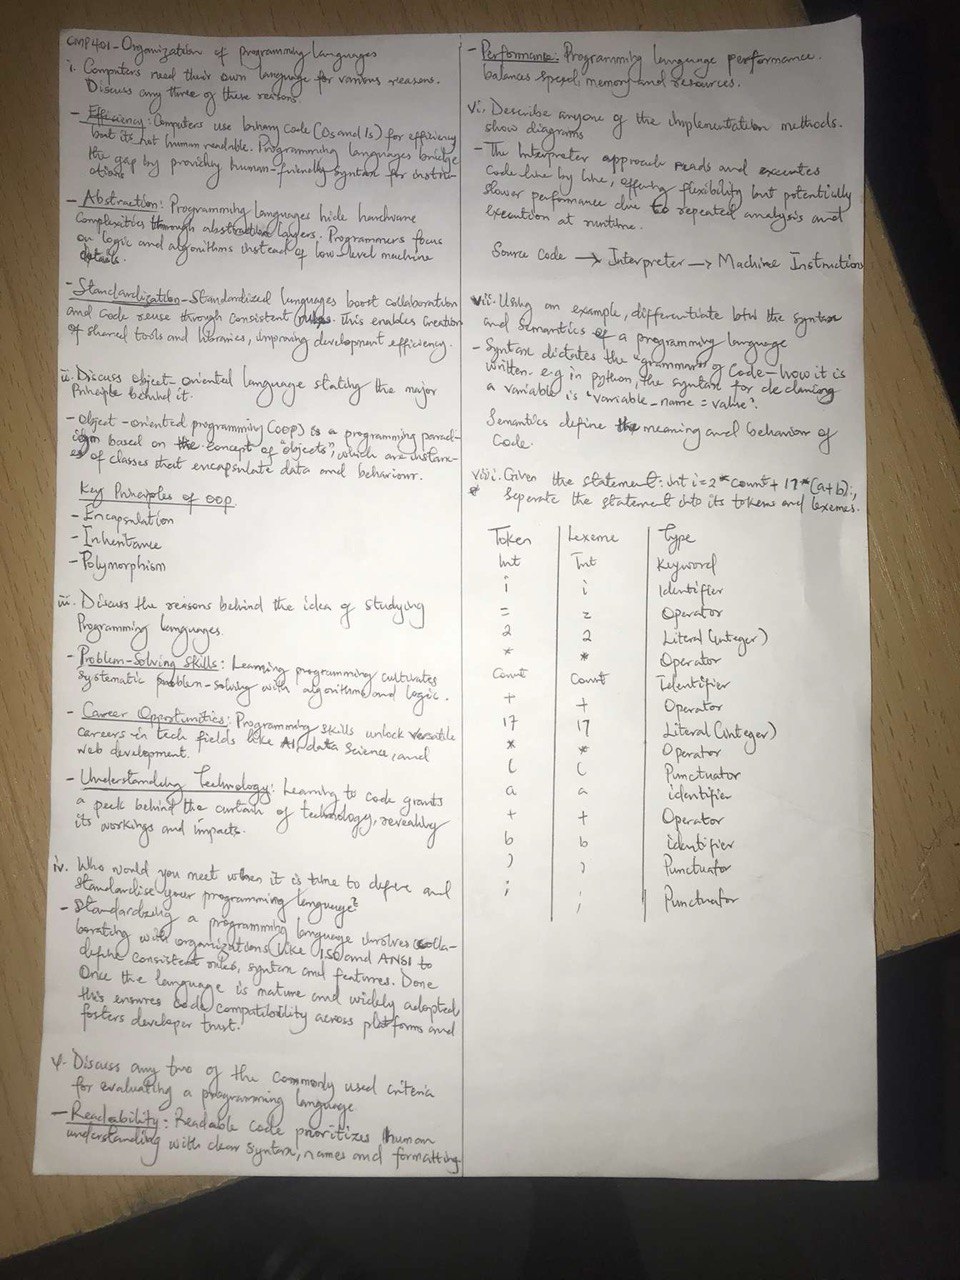 CMP401-Organization of programming languages
i. Computers need their own language for various reasons.
Discuss any three of these reasons
- Efficiency: Computers use binary code (0s and 1s) for efficiency
but its not human readable. Programming languages bridge
the gap by providing human-friendly syntax for instru-
ctions
- Abstraction: Programming languages hide hardware
complexities through abstraction layers. Programmers focus
on logic and algorithms instead of low-level machine
details.
- Standardization - Standardized languages boost collaboration
and code reuse through consistent rules. This enables creation
of shared tools and libraries, improving development efficiency.
ii. Discuss object-oriented language stating the major
Principle behind it.
- Object-oriented programming (OOP) is a programming parad-
igm based on the concept of "objects", which are instanc-
es of classes that encapsulate data and behaviour.
Key Principles of OOP
- Encapsulation
- Inheritance
- Polymorphism
iii. Discuss the reasons behind the idea of studying
Programming languages.
- Problem-Solving Skills: Learning programming cultivates
systematic problem-solving with algorithms and logic.
- Career Opportunities: Programming skills unlock versatile
careers in tech fields like AI, data science, and
web development.
- Understanding Technology: Learning to code grants
a peek behind the curtain of technology, revealing
its workings and impacts.
iv. Who would you meet when it is time to define and
standardise your programming language?
- Standardizing a programming language involves colla-
borating with organizations like ISO and ANSI to
define consistent rules, syntax and features. Done
Once the language is mature and widely adopted,
this ensures code compatibility across platforms and
fosters developer trust.
v. Discuss any two of the commonly used criteria
for evaluating a programming language
- Readability: Readable code prioritizes human
understanding with clear syntax, names and formatting
- Performance: Programming language performance
balances speed, memory and resources.
vi. Describe anyone of the implementation methods.
show diagrams
- The Interpreter approach reads and executes
code line by line, offering flexibility but potentially
slower performance due to repeated analysis and
execution at runtime.
Source Code → Interpreter → Machine Instruction
vii. Using an example, differentiate btw the syntax
and semantics of a programming language
- Syntax dictates the "grammar" of code - how it is
written. e.g in python, the syntax for declaring
a variable is "variable_name = value".
Semantics define the meaning and behavior of
code.
viii. Given the statement: int i=2*count+17*(a+b);,
Seperate the statement into its tokens and lexemes.
Token Lexeme Type
Int Int Keyword
i i Identifier
= = Operator
2 2 Literal (integer)
* * Operator
Count Count Identifier
+ + Operator
17 17 Literal (integer)
* * Operator
( ( Punctuator
a a identifier
+ + Operator
b b identifier
) ) Punctuator
; ; Punctuator